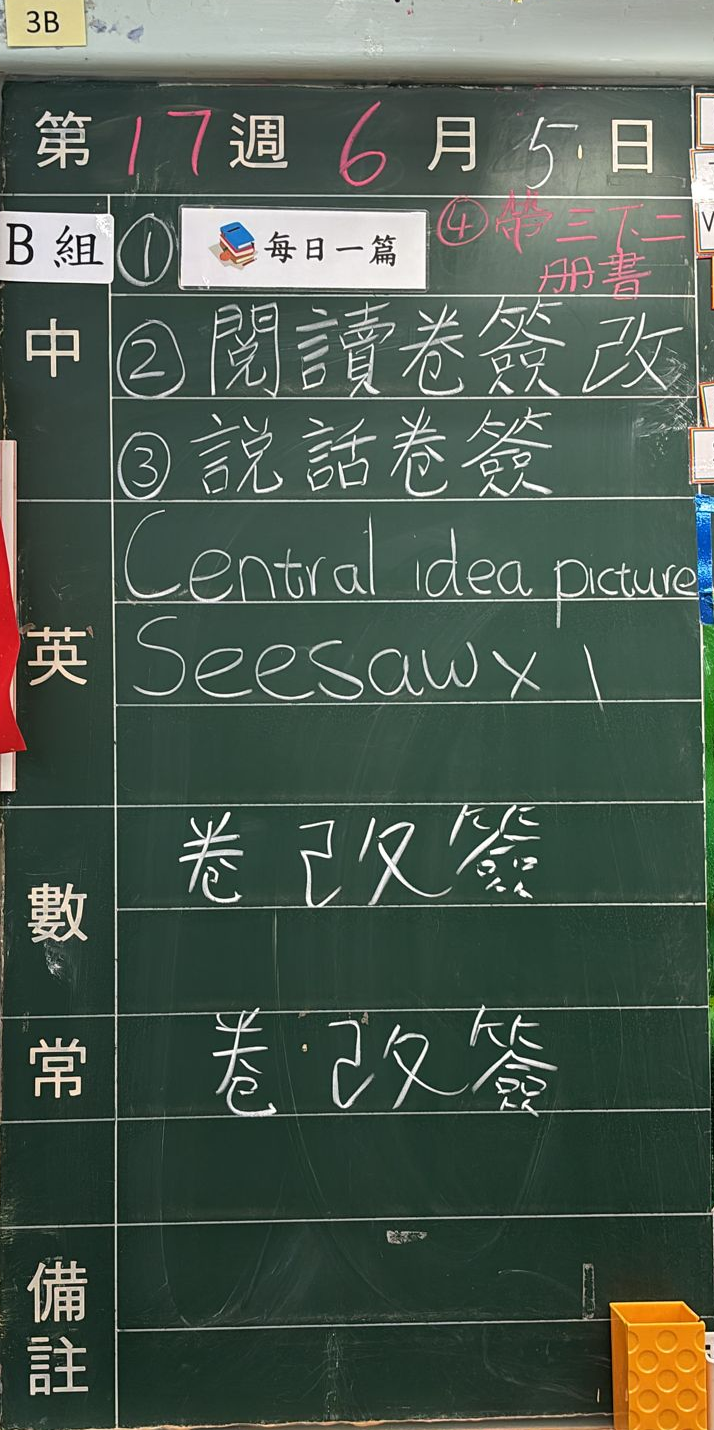 3B
第17週6月5日
B組 ① 每日一篇 ④帶三下二
册書
中 ②閱讀卷簽改
③説話卷簽
英 Central idea picture
Seesaw x 1
數 卷改簽
常 卷改簽
備註